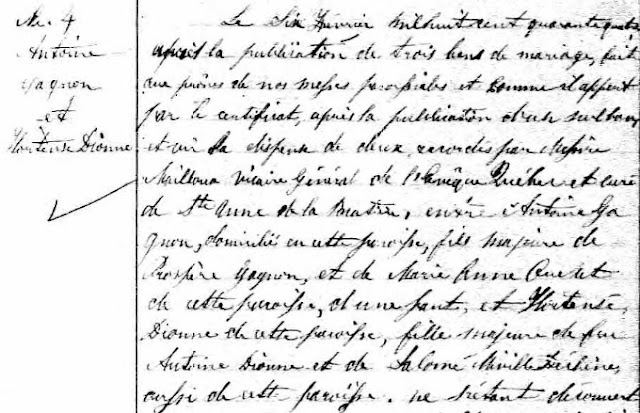 M. 4
Antoine
Gagnon
et
Hortense Dionne
Le Six Février mil huit cent quarante quatre
après la publication de trois bans de mariage, fait
aux prônes de nos messes paroissiales et comme il appert
par le certificat, après la publication d'un seul ban
et vu la dispense de deux, accordés par Messire
Mailloux Vicaire Général de l'Evêque Québec et curé
de Ste Anne de la
entre Antoine Ga
gnon, domicilié en cette paroisse, fils majeur de
Prospère Gagnon, et de Marie Anne Ouellet
de cette paroisse, d'une part, et Hortense
Dionne de cette paroisse, fille majeure de feu
Antoine Dionne et de Salomé Miville Deschènes
aussi de cette paroisse. ne s'étant découvert